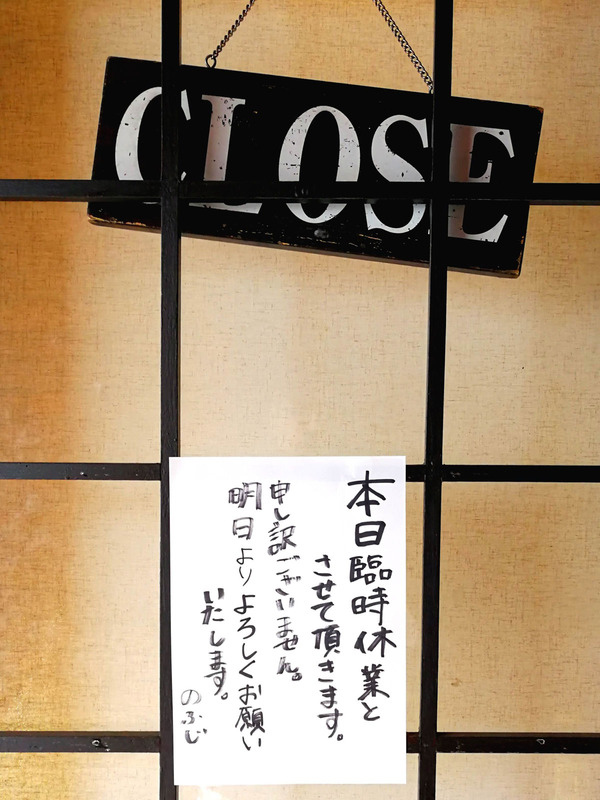 CLOSE
本日臨時休業と
させて頂きます。
申し訳ございません。
明日よりよろしくお願い
いたします。
のふじ